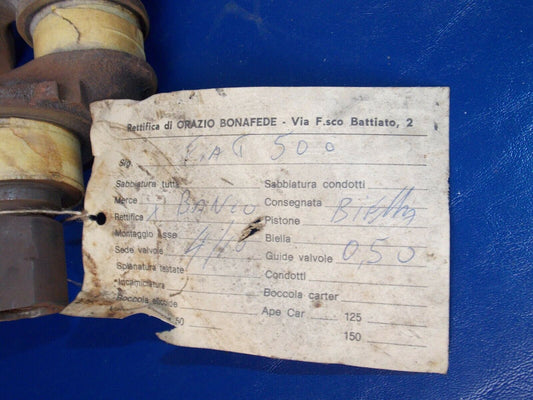 Rettifica di ORAZIO BONAFEDE - Via F.sco Battiato, 2
Sig. FIAT 500
Sabbiatura tutta
Merce X BANCO
Rettifica 4/10
Montaggio Asse
Sede valvole
Spianatura testate
Incamiciatura
Boccola
50
Sabbiatura condotti
Consegnata
Pistone BIELLA
Biella
Guide valvole 0,50
Condotti
Boccola carter
Ape Car 125
150